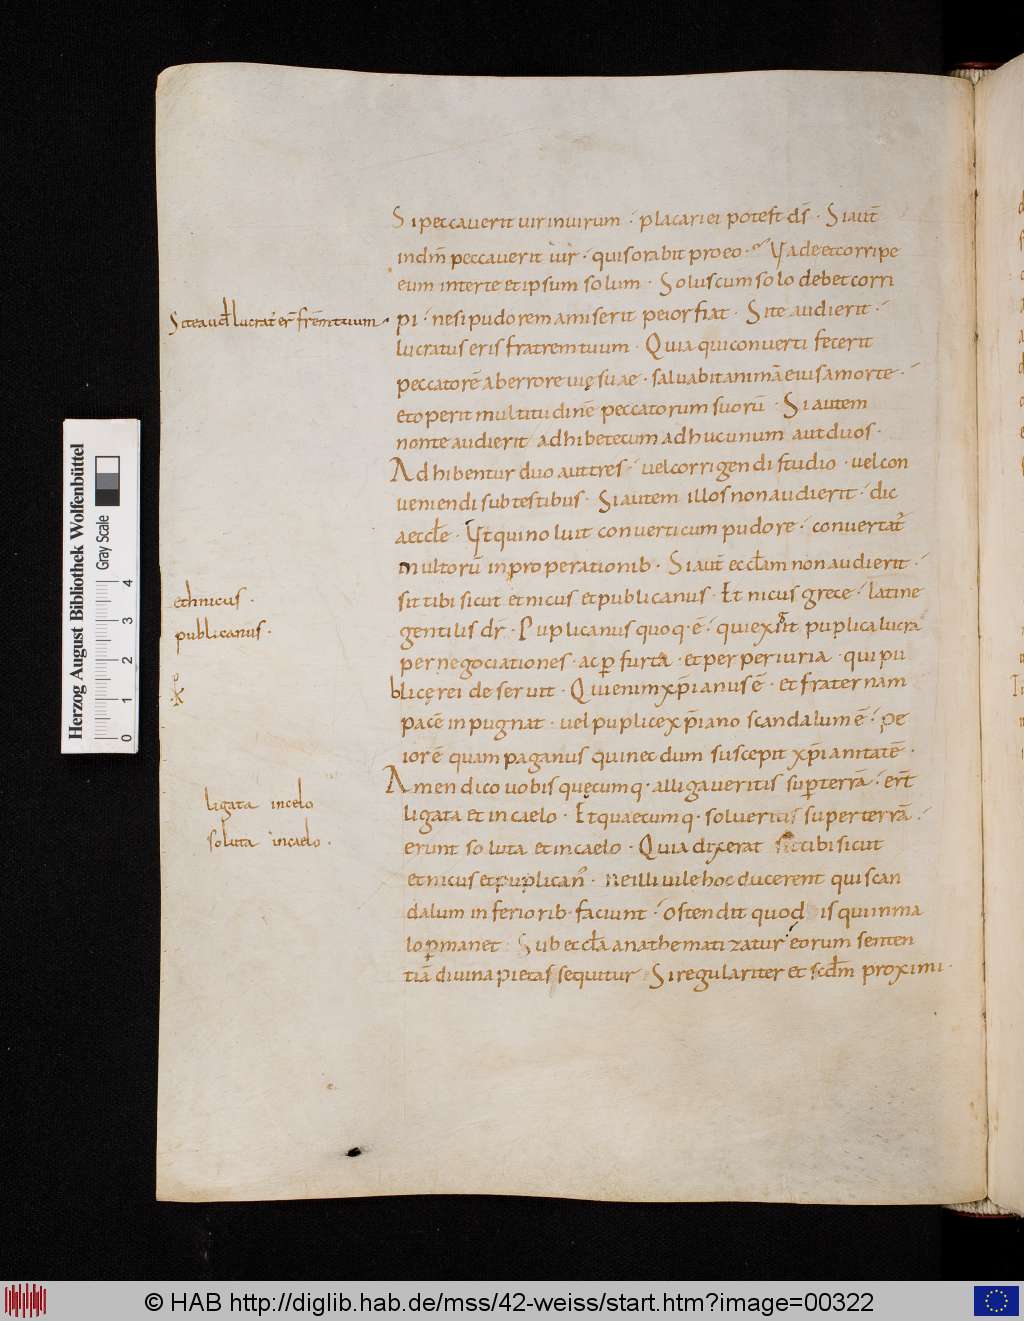 Si peccauerit uir in uirum · placari ei potest ds̄ · Si aut̄
in dn̄m peccauerit uir · quis orabit pro eo · Vade et corripe
eum inter te et ipsum solum · Solus cum solo debet corri
Si te aud̄ lucrat' er̄ frēm tuum ·
pi · ne si pudorem amiserit peior fiat · Si te audierit ·
lucratus eris fratrem tuum · Quia qui conuerti fecerit
peccatorē ab errore uię suae · saluabit animā eius a morte ·
et operit multitudinē peccatorum suorū · Si autem
non te audierit adhibe tecum adhuc unum aut duos ·
Adhibentur duo aut tres · uel corrigendi studio · uel con
ueniendi sub testibus · Si autem illos non audierit · dic
aeccłe · Vt qui noluit conuerti cum pudore · conuertat'
multorū inproperationib · Si aut̄ eccłam non audierit ·
ethnicus ·
sit tibi sicut etnicus et publicanus · Etnicus grece · latine
publicanus ·
gentilis dr̄ · Puplicanus quoq · ē · qui exigit puplica lucra
per negociationes · ac p̱ furta · et per periuria · qui pu
blicę rei deseruit · Qui enim xp̄ianus ē · et fraternam
pacē inpugnat · uel puplice xp̄iano scandalum ē · pe
ior ē quam paganus qui necdum suscepit xp̄ianitatē ·
Amen dico uobis quęcumq · alligaueritis sup̱ terrā · er̄t
ligata in celo
ligata et in caelo · Et quaecumq · solueritis super terrā ·
soluta in caelo ·
erunt soluta et in caelo · Quia dixerat sit tibi sicut
etnicus et puplican' · Ne illi uile hoc ducerent qui scan
dalum inferiorib · faciunt · Ostendit quod is qui in ma
lo p̱manet · Sub eccła anathematizatur eorum senten
tiā diuina pietas sequitur · Si regulariter et scd̄m proximi ·
Herzog August Bibliothek Wolfenbüttel
Gray Scale
0 1 2 3 4
© HAB http://diglib.hab.de/mss/42-weiss/start.htm?image=00322